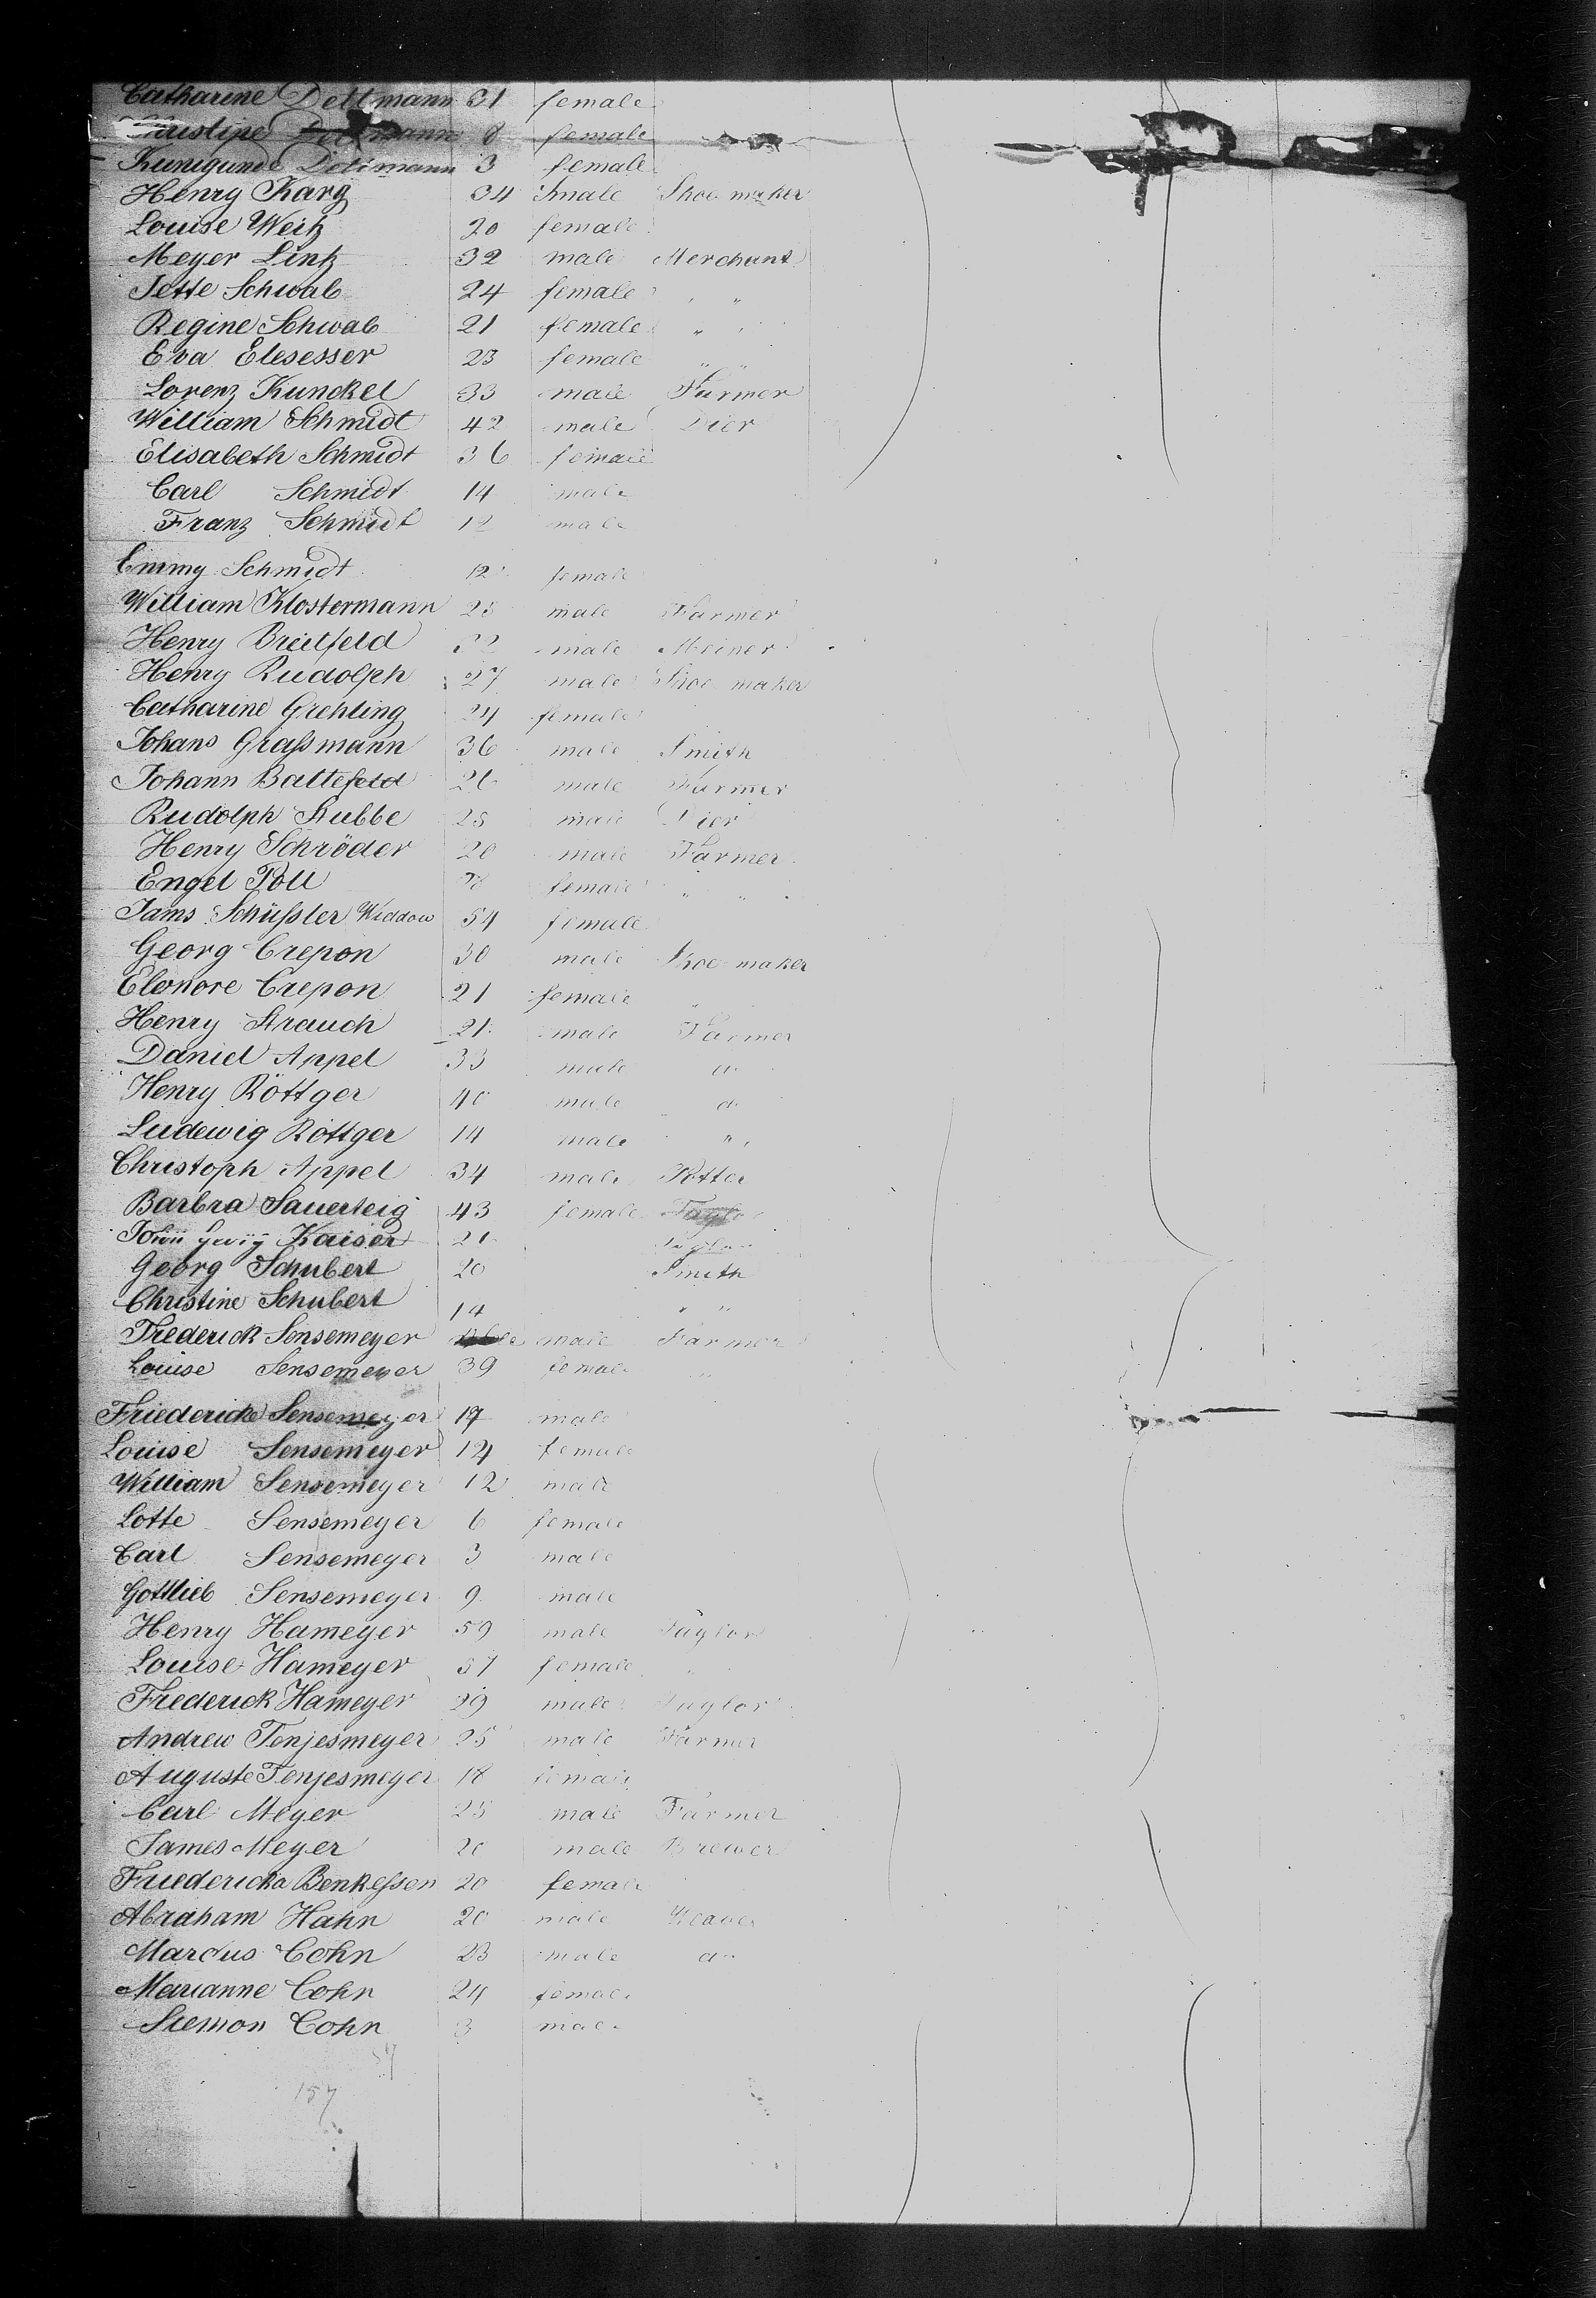 Catharine Dettmann 31 female
Christine Dettmann 8 female
Kunigunde Dettmann 3 female
Henry Karg 34 male Shoe maker
Louise Weitz 20 female
Meyer Lintz 32 male Merchant
Jette Schwab 24 female " "
Regine Schwab 21 female " "
Eva Elesesser 23 female " "
Lorenz Kunckel 33 male Farmer
William Schmidt 42 male Dier
Elisabeth Schmidt 36 female
Carl Schmidt 14 male
Franz Schmidt 12 male
Emmy Schmidt 12 female
William Klostermann 25 male Farmer
Henry Breitfeld 32 male Meiner
Henry Rudolph 27 male Shoe maker
Catharine Grehling 24 female
Johans Graßmann 36 male Smith
Johann Battefeld 26 male Farmer
Rudolph Stubbe 25 male Dier
Henry Schröder 20 male Farmer
Engel Poll female " "
Jams Schüßler Widdow 54 female
Georg Crepon 30 male Shoe maker
Elonore Crepon 21 female "
Henry Strauch 21 male Farmer
Daniel Appel 33 male do
Henry Röttger 40 male do
Ludewig Röttger 14 male " "
Christoph Appel 34 male Potter
Barbra Sauerteig 43 female Taylor
Kaiser 21 Taylor
Georg Schubert 20 Smith
Christine Schubert 14 " "
Frederick Sensemeyer male Farmer
Louise Sensemeyer 39 female "
Friedericke Sensemeyer 17 male
Louise Sensemeyer 14 female
William Sensemeyer 12 male
Lotte Sensemeyer 6 female
Carl Sensemeyer 3 male
Gottlieb Sensemeyer 9 male
Henry Hameyer 59 male Taylor
Louise Hameyer 57 female "
Frederick Hameyer 29 male Taylor
Andrew Tenjesmeyer 25 male Farmer
Auguste Tenjesmeyer 18 female
Carl Meyer 25 male Farmer
James Meyer 20 male Brewer
Friedericka Benkeßen 20 female
Abraham Hahn 20 male Weaver
Marcus Cohn 23 male do
Marianne Cohn 24 female
Siemon Cohn 3 male
57
157